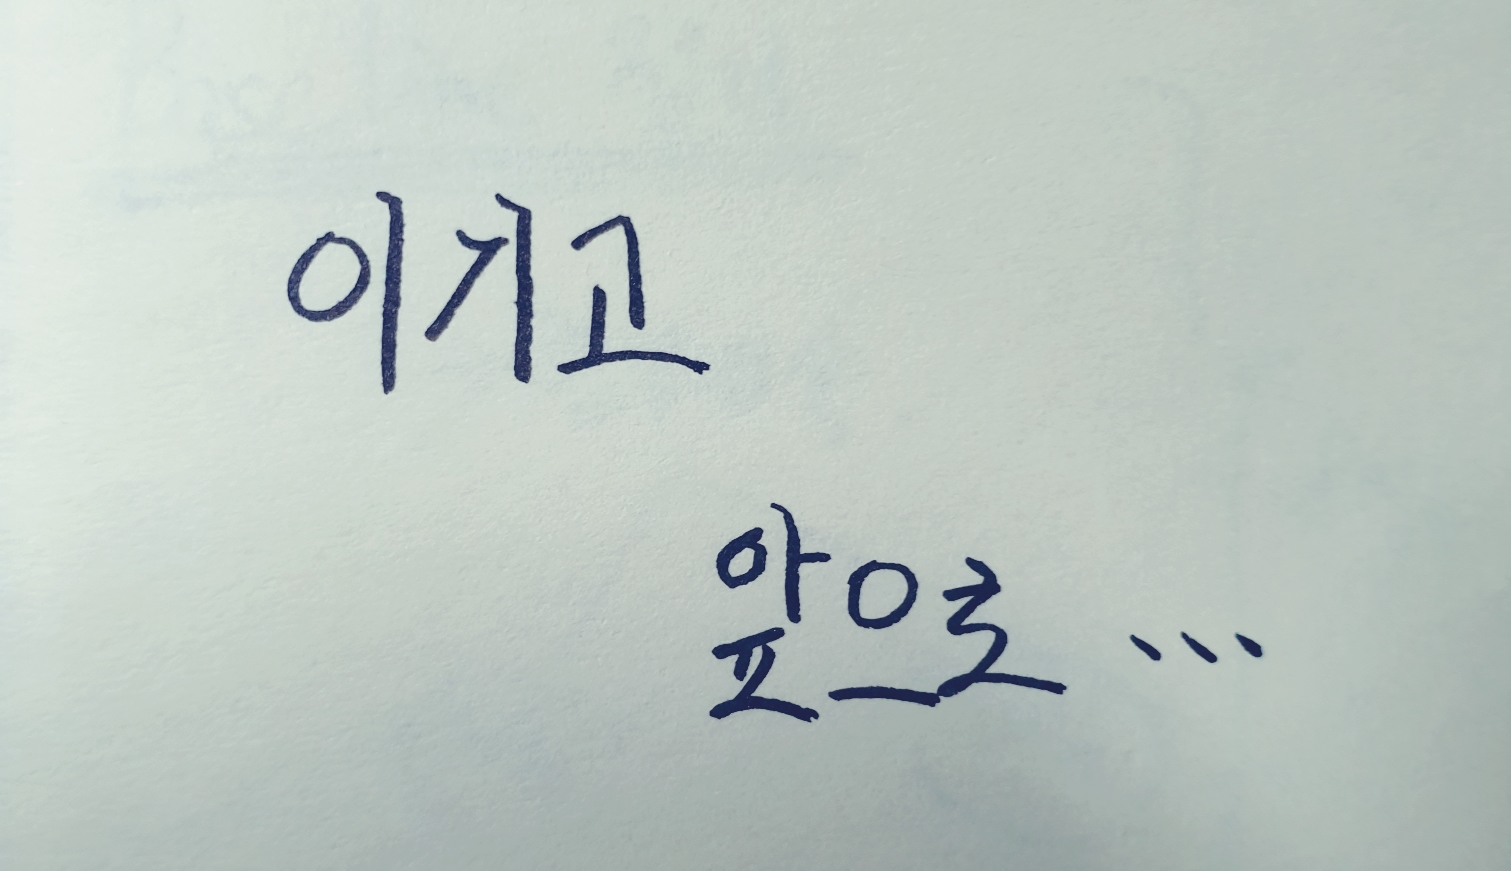 이기고
앞으로...